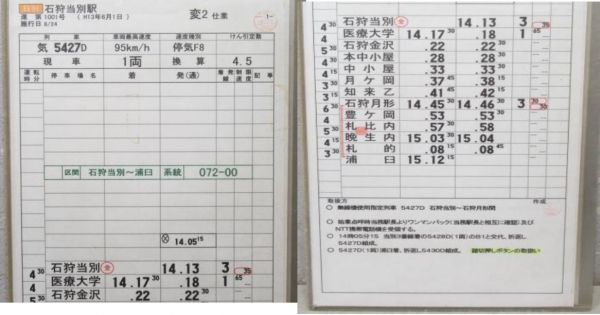 石狩当別駅
運 第 1001号 (H13年6月1日)
施行日 8/24
変2 仕業
列車 車両最高速度 速度種別 けん引定数
気 5427D 95km/h 停気F8
現車 1両 換算 4.5
運転時分 停車場名 着 発(通) 着発線 制限速度 記事
区間 石狩当別~浦臼 系統 072-00
14.05 15
石狩当別 14.13 3 35
4 30 医療大学 14.17 30 .18 1
4 30 石狩金沢 .22 .22 30
石狩当別 14.13 3 35
4 30 医療大学 14.17 30 .18 1
4 30 石狩金沢 .22 .22 30
本中小屋 .28 .28
中小屋 .33 .33
月ケ岡 .37 .38
知来乙 .41 .42
石狩月形 14.45 14.46 3
豊ケ岡 .53 .53
札比内 .57 .58
晩生内 15.03 15.04
札的 .08 .08
浦臼 15.12 15
取扱方 作成
○ 無線機使用指定列車 5427D 石狩当別~石狩月形間
○ 始業点呼時当務駅長よりワンマンパック(当務駅長と相互に確認)及び
NTT携帯電話機を受領する。
○ 14時05分15 当別3番線着の5428D(1両)の61と交代、折返し
5427D組成。
○ 5427D(1両)浦臼着、折返し5430D組成。 踏切押しボタンの取扱い